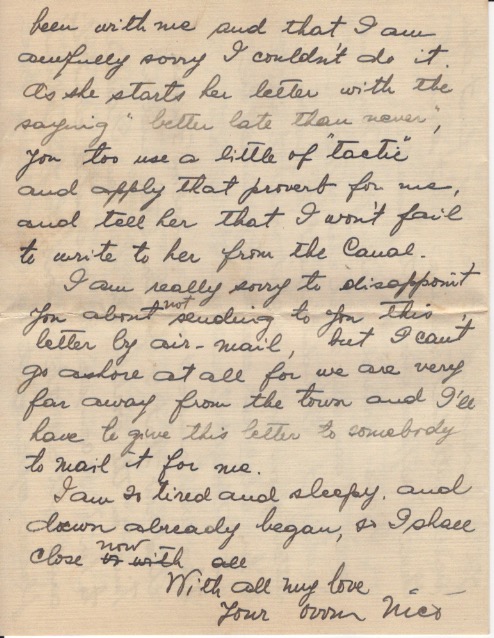 been with me and that I am
awfully sorry I couldn't do it.
As she starts her letter with the
saying "better late than never",
you too use a little of "tactic"
and apply that proverb for me,
and tell her that I won't fail
to write to her from the Canal.
I am really sorry to disappoint
you about not sending to you this
letter by air-mail, but I can't
go ashore at all for we are very
far away from the town and I'll
have to give this letter to somebody
to mail it for me.
I am so tired and sleepy, and
down already began, so I shall
close now with all
With all my love
Your own Nico